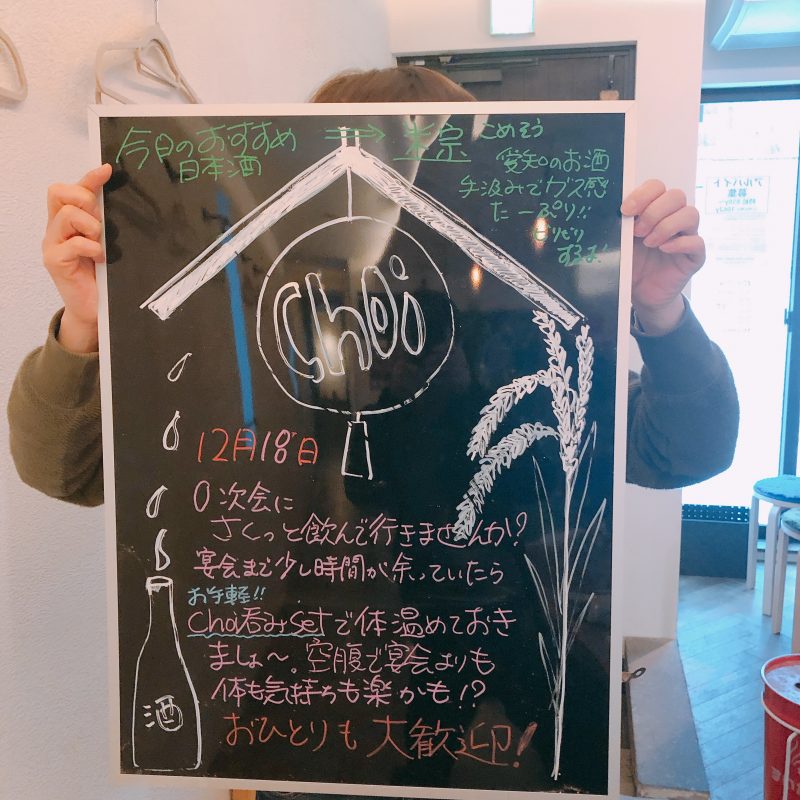 今日のおすすめ ⇒ 粽 こめそう
日本酒
愛知のお酒
手汲みでガス感
たーぷり!!
ピリピリ
するよ!
choi
12月18日
0次会に
さくっと飲んで行きませんか!?
宴会まで少し時間が余っていたら
お手軽!!
choi呑みsetで体温めておき
ましょ〜。空腹で宴会よりも
体も気持ちも楽かも!?
おひとりも大歓迎!
酒
アルバイト
募集